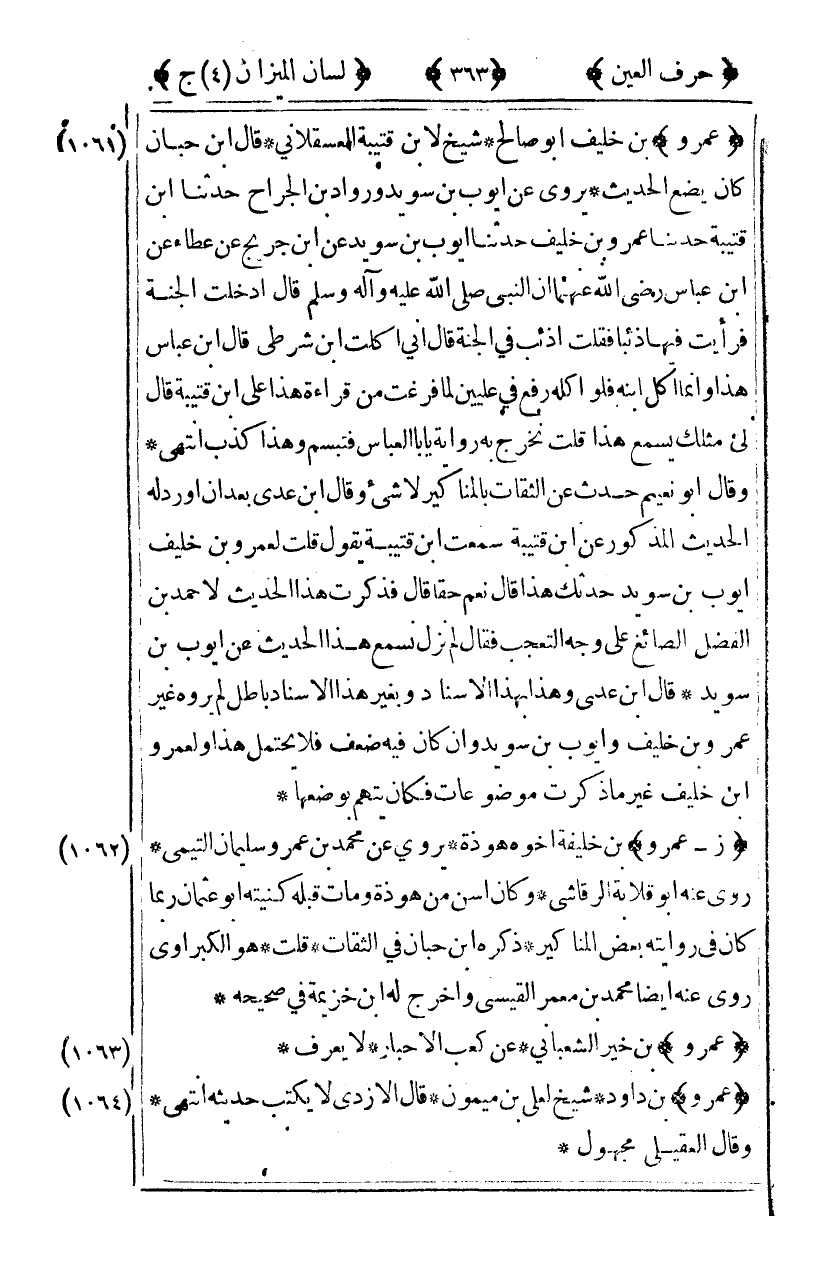 ﴿ حرف العين ﴾ ﴿ ٣٦٣ ﴾ ﴿ لسان الميزان (٤) ج ﴾
﴿ عمرو ﴾ بن خليف ابو صالح * شيخ لابن قتيبة العسقلاني * قال ابن حبان (١٠٦١)
كان يضع الحديث * يروى عن ايوب بن سويد ورواد بن الجراح حدثنا ابن
قتيبة حدثنا عمرو بن خليف حدثنا ايوب بن سويد عن ابن جريج عن عطاء عن
ابن عباس رضى الله عنهما ان النبى صلى الله عليه وآله وسلم قال ادخلت الجنة
فرأيت فيها ذئبا فقلت اذئب في الجنة قال انى اكلت ابن شرطى قال ابن عباس
هذا وانما اكل ابنه فلو اكله رفع في عليين لما فرغت من قراءة هذا على ابن قتيبة قال
لى مثلك يسمع هذا قلت نخرج به رواية يا با العباس فتبسم وهذا كذب انتهى *
وقال ابو نعيم حدث عن الثقات بالمناكير لا شئ وقال ابن عدى بعد ان اورد له
الحديث المذكور عن ابن قتيبة سمعت ابن قتيبة يقول قلت لعمرو بن خليف
ايوب بن سويد حدثك هذا قال نعم حقا قال فذكرت هذا الحديث لاحمد بن
الفضل الصائغ على وجه التعجب فقال لم نزل نسمع هذا الحديث عن ايوب بن
سويد * قال ابن عدى وهذا بهذا الاسناد وبغير هذا الاسناد باطل لم يروه غير
عمرو بن خليف وايوب بن سويد وان كان فيه ضعف فلا يحتمل هذا ولعمرو
ابن خليف غير ما ذكرت موضوعات فكان يتهم بوضعها *
﴿ ز - عمرو ﴾ بن خليفة اخوه هوذة * يروي عن محمد بن عمرو سليمان التيمى * (١٠٦٢)
روى عنه ابو قلابة الرقاشى * وكان اسن من هوذة ومات قبله كنيته ابو عثمان ربما
كان فى روايته بعض المناكير * ذكره ابن حبان في الثقات * قلت * هو الكبراوى
روى عنه ايضا محمد بن معمر القيسى واخرج له ابن خزيمة في صحيحه *
﴿ عمرو ﴾ بن خير الشعباني * عن كعب الاحبار * لا يعرف * (١٠٦٣)
﴿ عمرو ﴾ بن داود * شيخ لعلى بن ميمون * قال الازدى لا يكتب حديثه انتهى * (١٠٦٤)
وقال العقيلى مجهول *